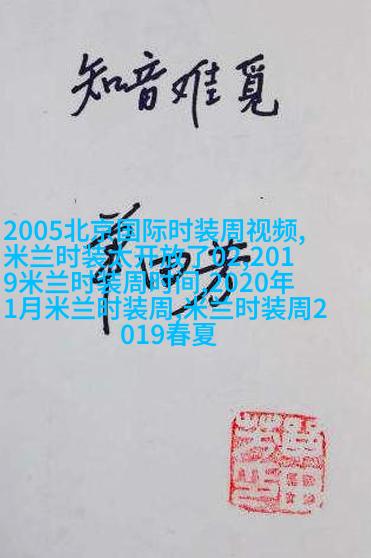 知音难觅
单田芳
2005北京国际时装周视频,
米兰时装太开放了 02,201
9米兰时装周时间,2020年
1月米兰时装周,米兰时装周2
019春夏